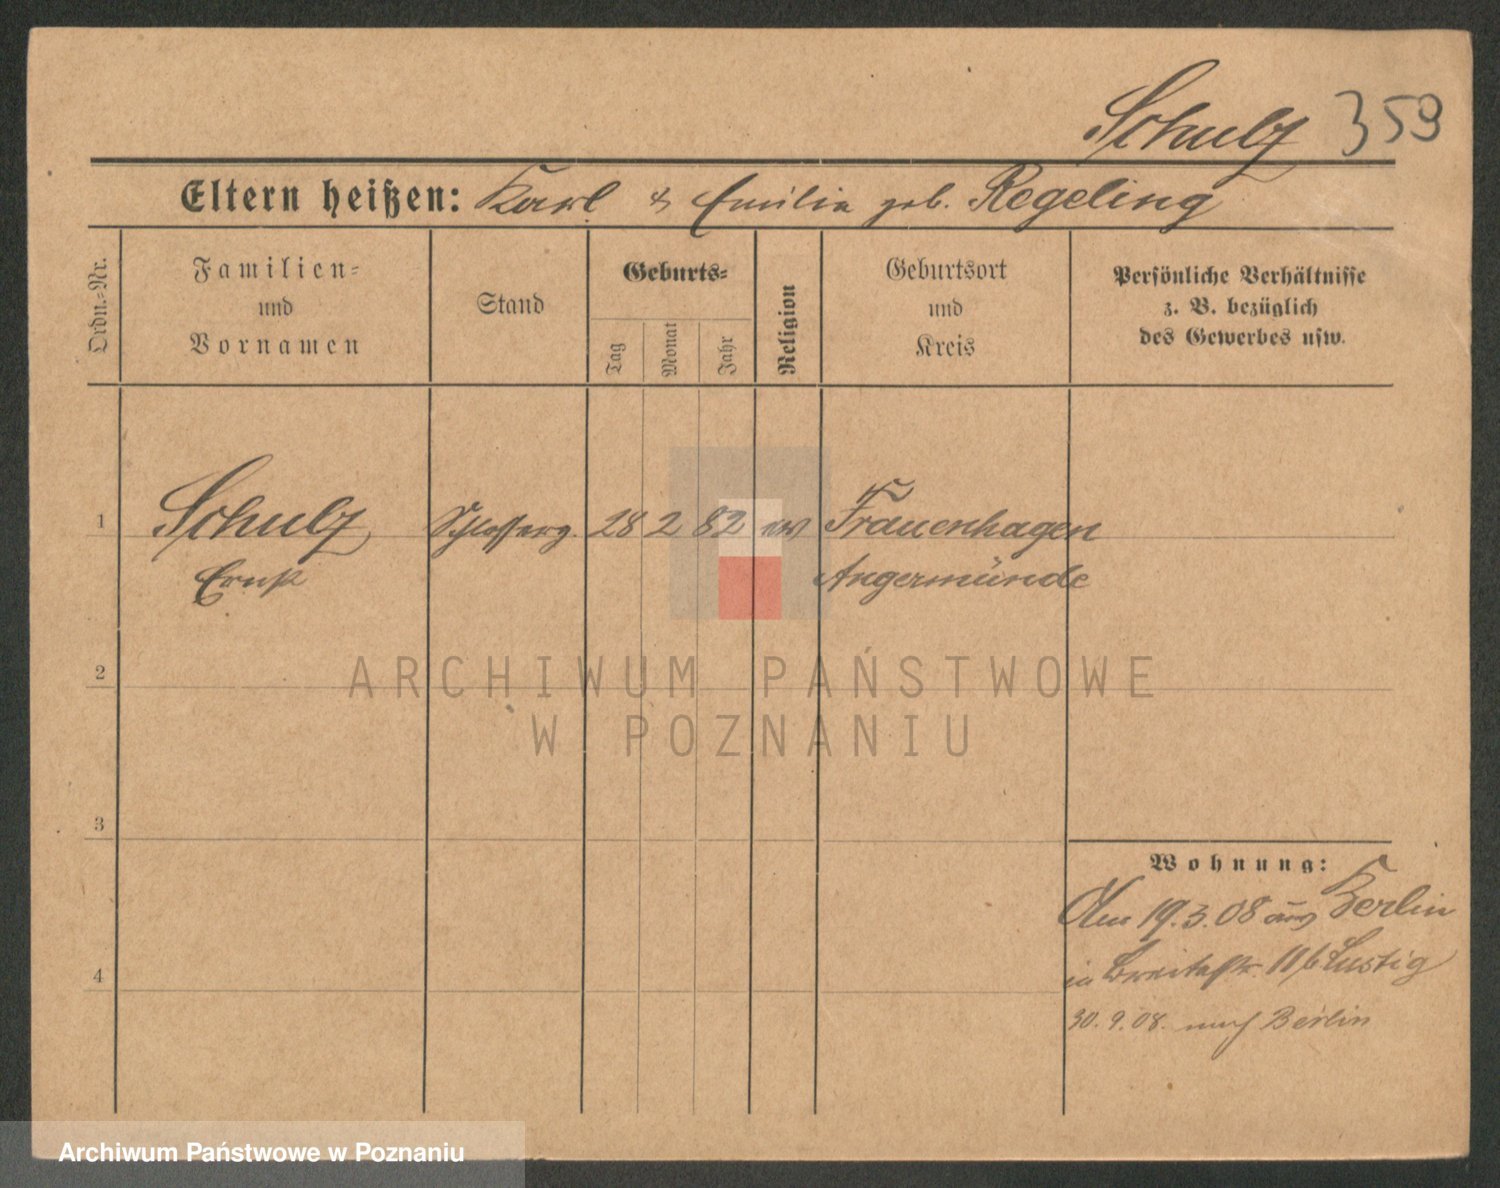 Schulz 359
Eltern heißen: Karl & Emilia geb. Regeling
Ordn.-Nr.
Familien-
und
Vornamen
Stand
Geburts-
Tag
Monat
Jahr
Religion
Geburtsort
und
Kreis
Persönliche Verhältnisse
z. B. bezüglich
des Gewerbes usw.
1 Schulz Schlosserg. 28 2 82 ev Frauenhagen
Ernst Angermünde
2
ARCHIWUM PAŃSTWOWE
W POZNANIU
3
Wohnung:
Am 19.3.08 aus Berlin
in Breitestr. 11 b Lustig
4
30.9.08. nach Berlin
Archiwum Państwowe w Poznaniu